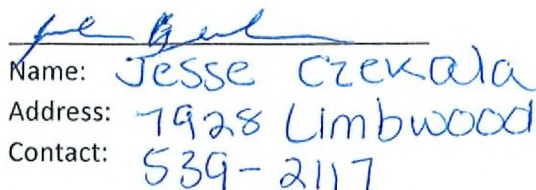 Name: Jesse Czekala
Address: 7928 Limbwood
Contact: 539-2117